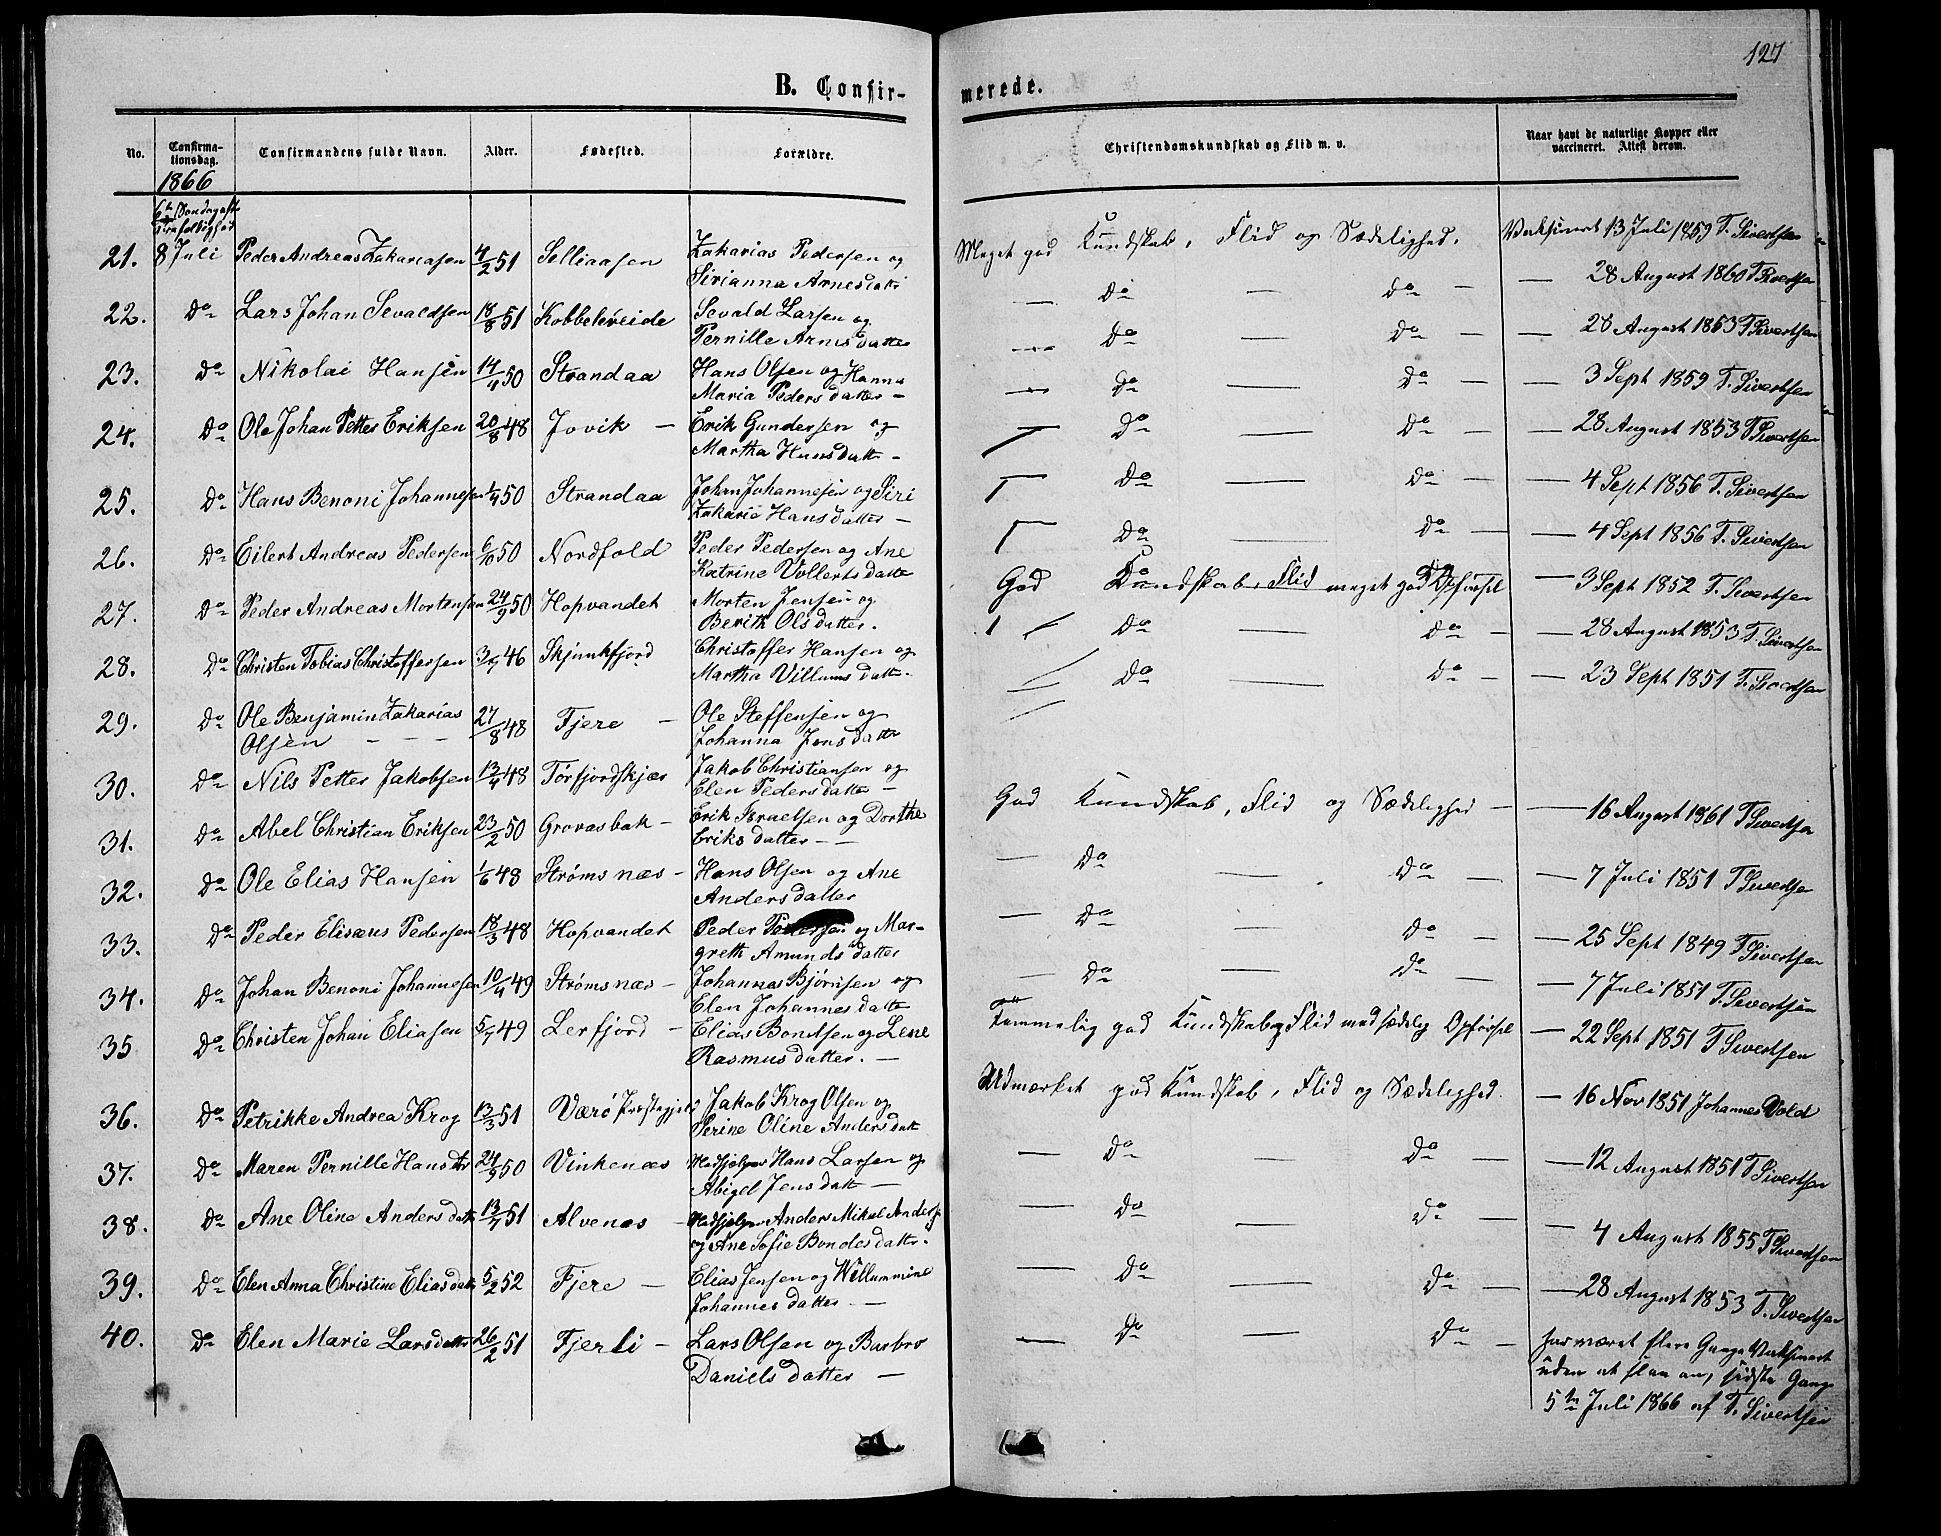 127
B. Confir-
merede.
No. Confirma-tionsdag. Confirmandens fulde Navn. Alder. Fødested. Forældre.
Christendomskundskab og Flid m. v. Naar havt de naturlige Kopper eller vaccineret. Attest derom.
1866
6te Søndag eft
Trefoldighed
21. 8 Juli Peder Andreas Zakariasen 4/2 51 Selliaasen Zakarias Pedersen og
Sirianna Arnesdatter
22. Do Lars Johan Sevaldsen 18/8 51 Kobbelveide Sevald Larsen og
Pernille Arnts datter
23. Do Nikolai Hansen 14/4 50 Strandaa Hans Olsen og Hanna
Maria Peders datter -
24. Do Ole Johan Petter Eriksen 20/8 48 Jovik - Erik Gundersen og
Martha Hansdatt -
25. Do Hans Benoni Johannesen 50 Strandaa Johan Johannesen og Siri
Zakarie Hans datter -
26. Do Eilert Andreas Pedersen 6/10 50 Nordfold Peder Pedersen og Ane
Katrine Vollerts datter
27. Do Peder Andreas Mortensen 24/9 50 Hopvandet Morten Jensen og
Berith Ols datter.
28. Do Christen Tobias Christoffersen 46 Skjunkfjord Christoffer Hansen og
Martha Villums datt.
29. Do Ole Benjamin Zakarias 27/8 48 Fjere - Ole Steffensen og
Olsen - - - Johanna Jens datter
30. Do Nils Petter Jakobsen 13/4 48 Tørfjordskjær Jakob Christiansen og
Elen Peders datter -
31. Do Abel Christian Eriksen 23/2 50 Grovasbak - Erik Israelsen og Dorthe
Eriks datter - -
32. Do Ole Elias Hansen 1/6 48 Strømsnæs - Hans Olsen og Ane
Anders datter
33. Do Peder Elisæus Pedersen 18/3 48 Hopvandet Peder Pedersen og Mar-
greth Amunds datter
34. Do Johan Benoni Johannesen 10/4 49 Strømsnæs - Johannes Bjørnsen og
Elen Johannes datter
35 Do Christen Johan Eliasen 49 Lerfjord - Elias Bondsen og Lene
Rasmus datter. -
36. Do Petrikke Andrea Krog 13/3 51 Værø Præstegjeld Jakob Krog Olsen og
Serine Oline Anders datt
37. Do Maren Pernille Hansdtr 24/9 50 Vinkenæs Hans Larsen og
Abigel Jens datt -
38. Do Ane Oline Anders datter 51 Alvenes - Anders Mikal Anders
og Ane Sofie Bondes datter.
39. Do Elen Anna Christine Elias datter 5/2 52 Fjere - Elias Jensen og Willummine
Johannes datter -
40. Do Elen Marie Larsdatter 26/2 51 Fjerli - Lars Olsen og Barbro
Daniels datter -
Meget god Kundskab, Flid og Sædelighed. Vaksineret 13 Juli 1859 T. Sivertsen
— Do — Do - — 28 August 1860 T. Sivertsen
— Do — Do - — 28 August 1853 T. Sivertsen
— Do — Do - — 3 Sept 1859 T. Sivertsen
— Do — Do - — 28 August 1853 T. Sivertsen
— Do — Do - — 4 Sept 1856 T. Sivertsen
— Do — Do - — 4 Sept 1856 T. Sivertsen
God Kundskab, Flid meget god Opførsel — 3 Sept 1852 T. Sivertsen
Do — Do - — 28 August 1853 T. Sivertsen
Do — Do - — 23 Sept 1851 T. Sivertsen
God Kundskab, Flid og Sædelighed - — 16 August 1861 T Sivertsen
— Do — Do — — 7 Juli 1851 T Sivertsen
— Do — Do — — 25 Sept 1849 T Sivertsen
— Do — Do — — 7 Juli 1851 T. Sivertsen
Temmelig god Kundskab og Flid med sædelig Opførsel — 22 Sept 1851 T Sivertsen
Udmærket god Kundskab, Flid og Sædelighed. — 16 Nov 1851 Johannes Vold
— Do — Do — — 12 August 1851 T Sivertsen
— Do — Do — — 4 August 1855 T Sivertsen
— Do — Do — — 28 August 1853 T. Sivertsen
— Do — Do — har været flere Gange Vaksineret
uden at slaa an, sidste Gang
5te Juli 1866 af T. Sivertsen